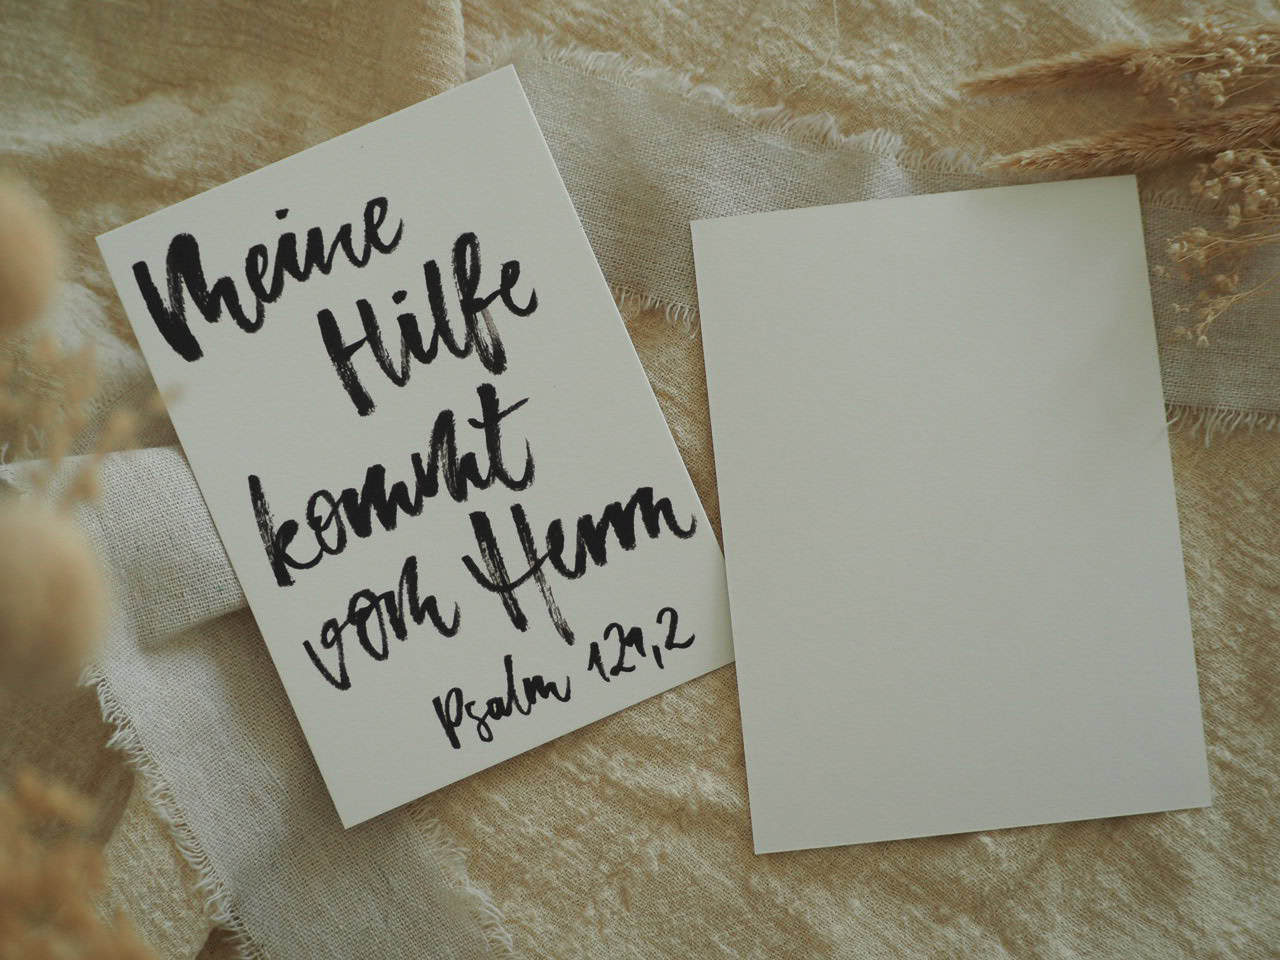 Meine
Hilfe
kommt
vom Herrn
Psalm 121,2